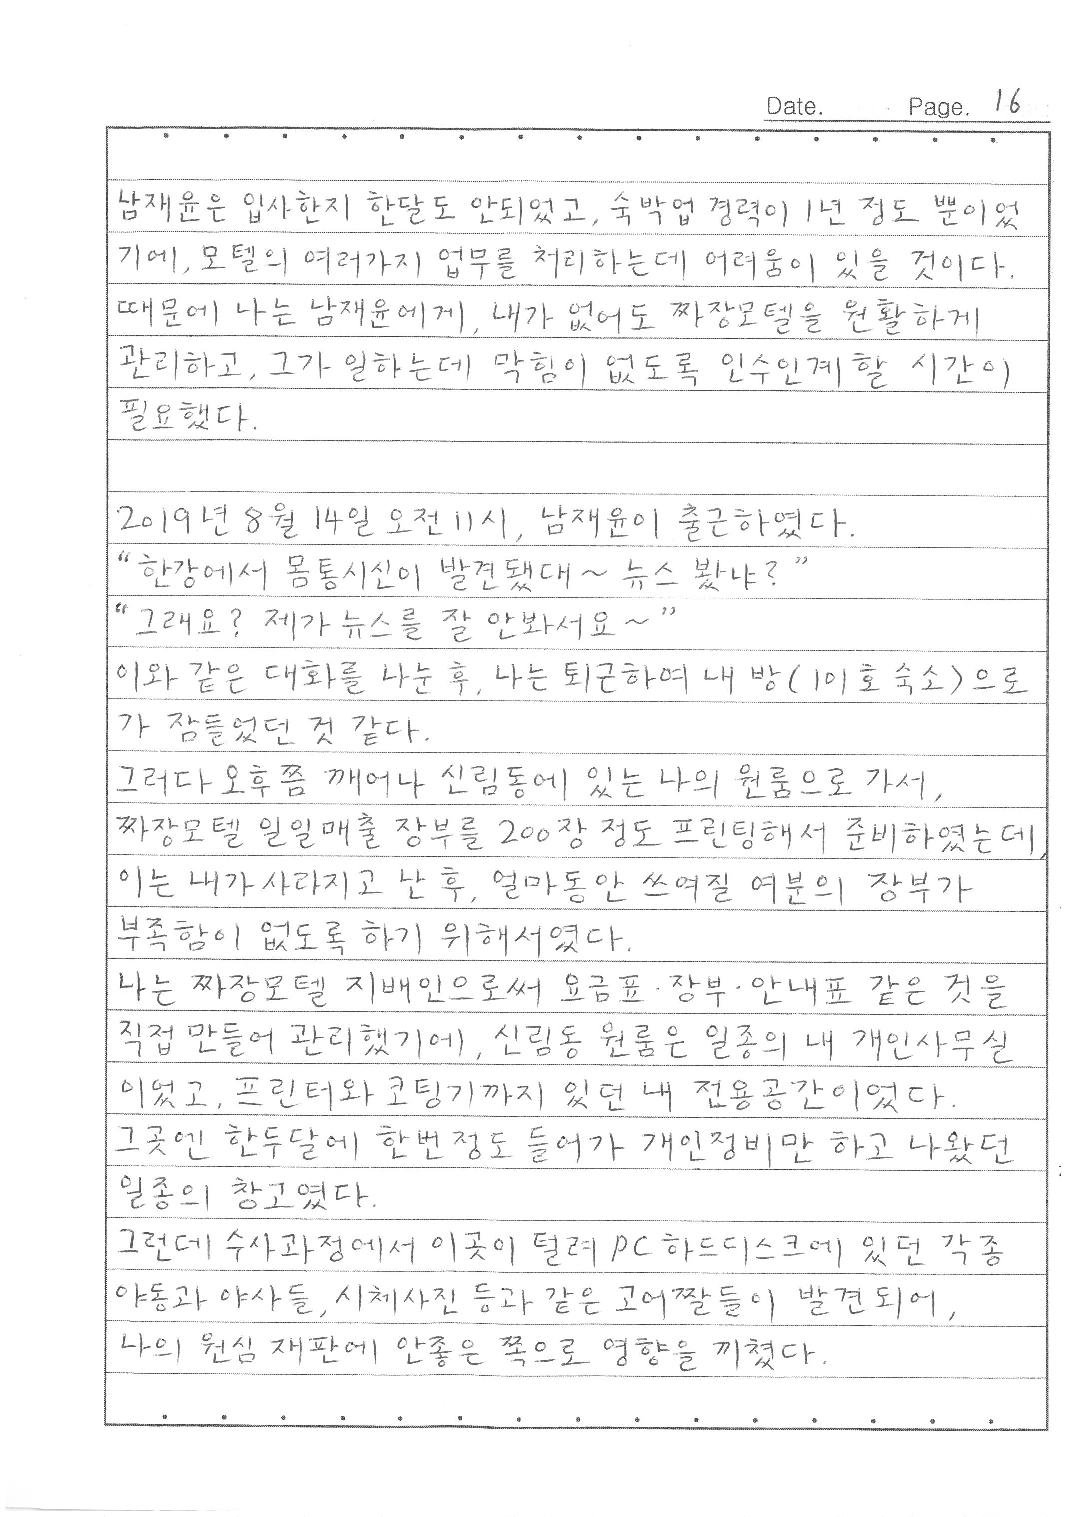 Date. Page. 16
남재윤은 입사한지 한달도 안되었고, 숙박업 경력이 1년 정도 뿐이었
기에, 모텔의 여러가지 업무를 처리하는데 어려움이 있을 것이다.
때문에 나는 남재윤에게, 내가 없어도 짜장모텔을 원활하게
관리하고, 그가 일하는데 막힘이 없도록 인수인계 할 시간이
필요했다.
2019년 8월 14일 오전 11시, 남재윤이 출근하였다.
“한강에서 몸통시신이 발견됐대~ 뉴스 봤냐?”
“그래요? 제가 뉴스를 잘 안봐서요~”
이와 같은 대화를 나눈 후, 나는 퇴근하여 내 방(101호 숙소)으로
가 잠들었던 것 같다.
그러다 오후쯤 깨어나 신림동에 있는 나의 원룸으로 가서,
짜장모텔 일일매출 장부를 200장 정도 프린팅해서 준비하였는데,
이는 내가 사라지고 난 후, 얼마동안 쓰여질 여분의 장부가
부족함이 없도록 하기 위해서였다.
나는 짜장모텔 지배인으로써 요금표·장부·안내표 같은 것을
직접 만들어 관리했기에, 신림동 원룸은 일종의 내 개인사무실
이었고, 프린터와 코팅기까지 있던 내 전용공간이었다.
그곳엔 한두달에 한번정도 들어가 개인정비만 하고 나왔던
일종의 창고였다.
그런데 수사과정에서 이곳이 털려 PC하드디스크에 있던 각종
야동과 야사들, 시체사진 등과 같은 고어짤들이 발견되어,
나의 원심 재판에 안좋은 쪽으로 영향을 끼쳤다.